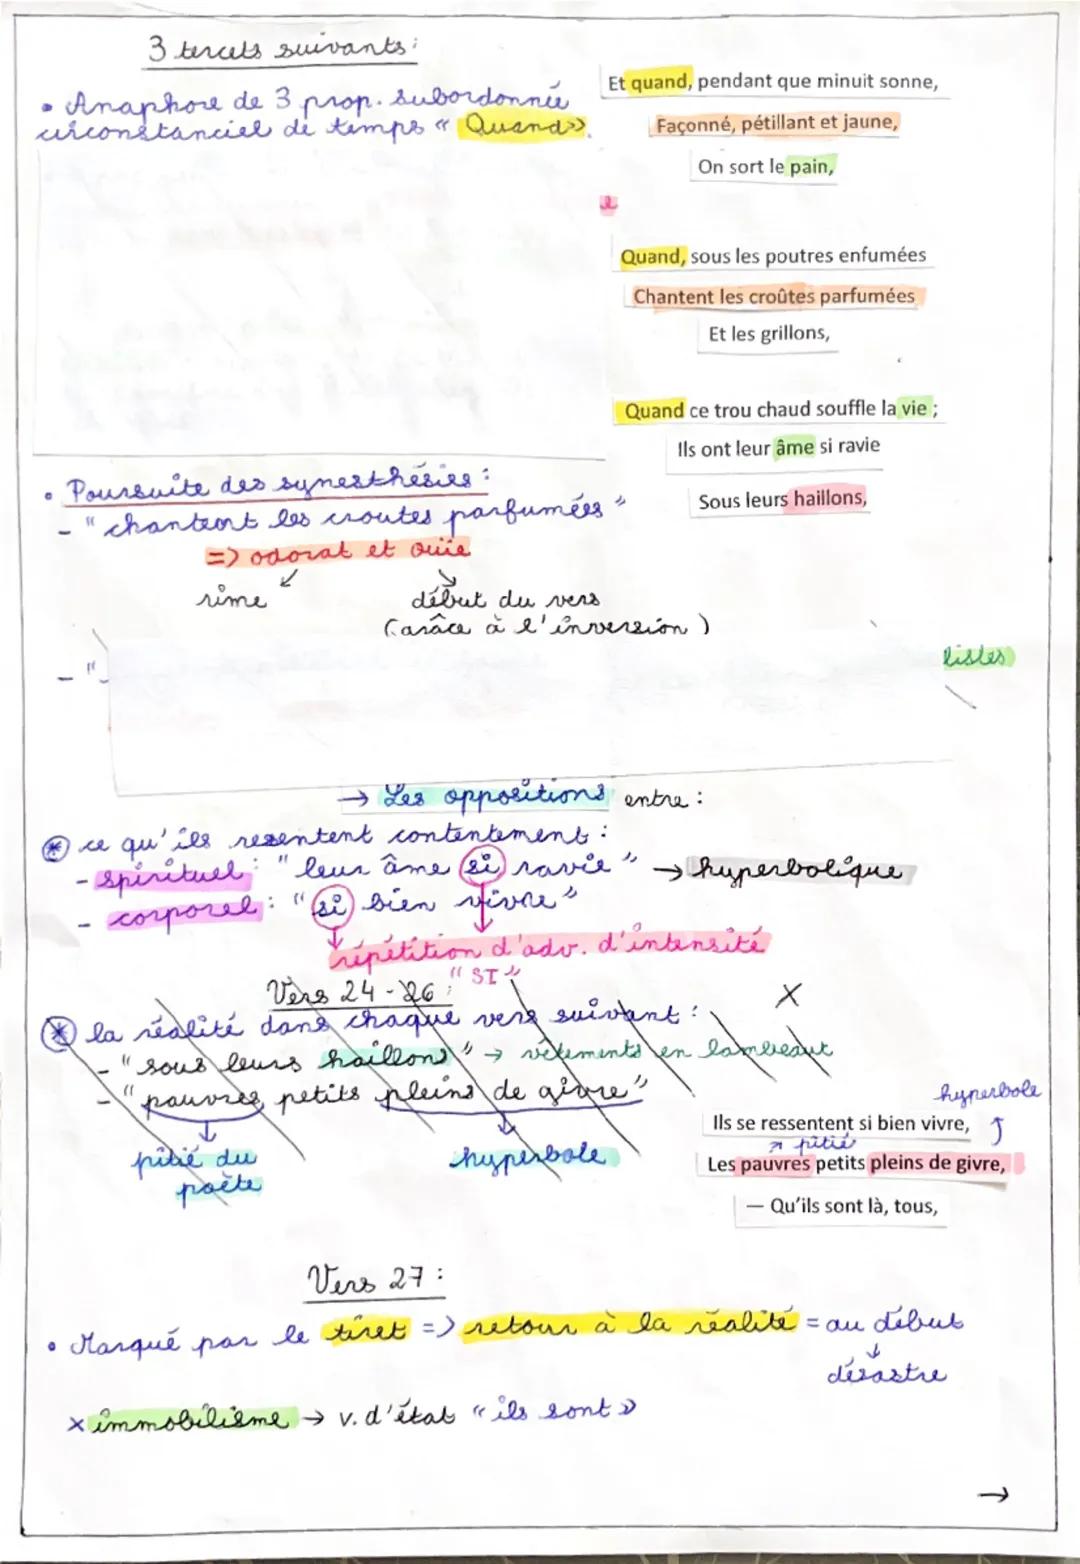 3 tercets suivants :
• Anaphore de 3 prop. subordonnée
circonstanciel de temps « Quand ».
Et quand, pendant que minuit sonne,
Façonné, pétillant et jaune,
On sort le pain,
Quand, sous les poutres enfumées
Chantent les croûtes parfumées
Et les grillons,
Quand ce trou chaud souffle la vie ;
Ils ont leur âme si ravie
Sous leurs haillons,
• Poursuite des synesthésies :
- " chantent les croutes parfumées "
=> odorat et ouïe
rime
début du vers
(grâce à l'inversion )
- "
listes
→ Les oppositions entre :
* ce qu'ils resentent contentement :
- spirituel : " leur âme si ravie " → hyperbolique
- corporel : " si bien vivre "
répétition d'adv. d'intensité
" SI "
Vers 24 - 26 :
X
* la réalité dans chaque vers suivant :
- " sous leurs haillons " → vêtements en lambeaux
- " pauvres petits pleins de givre "
pitié du
poète
hyperbole
hyperbole
Ils se ressentent si bien vivre,
↗ pitié
Les pauvres petits pleins de givre,
— Qu'ils sont là, tous,
Vers 27 :
• Marqué par le tiret => retour à la réalité = au début
désastre
x immobilisme → v. d'état « ils sont »
→